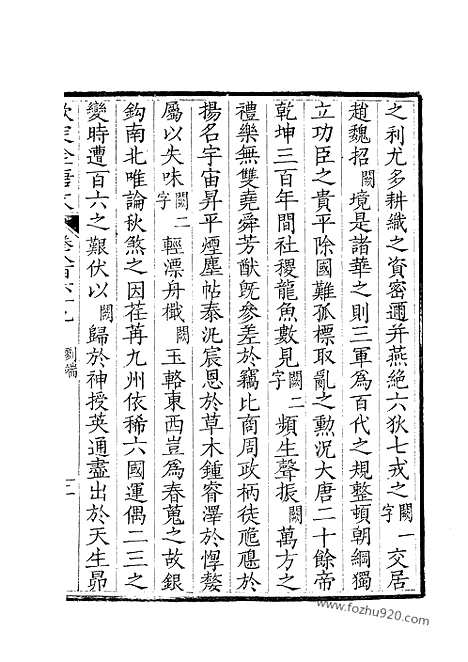 之利尤多耕織之資密邇并燕絶六狄七戎之闕一字交居
趙魏招闕境是諸華之則三軍為百代之規整頓朝綱獨
立功臣之貴平除國難孤標取亂之勲況大唐二十餘帝
乾坤三百年間社稷龍魚數見闕二字頻生聲振闕萬方之
禮樂無雙堯舜芳猷旣參差於竊比商周政柄徒虺隤於
揚名宇宙昇平煙塵帖泰沘宸恩於草木鍾睿澤於惸嫠
屬以失味闕二字輕漂舟檝闕玉輅東西豈為春蒐之故銀
鈎南北唯論秋煞之因荏苒九州依稀六國運偶二三之
變時遭百六之艱伏以闕歸於神授英通盡出於天生昴
欽定全唐文 卷八百六十九 劉端 二
www.fozhu920.com